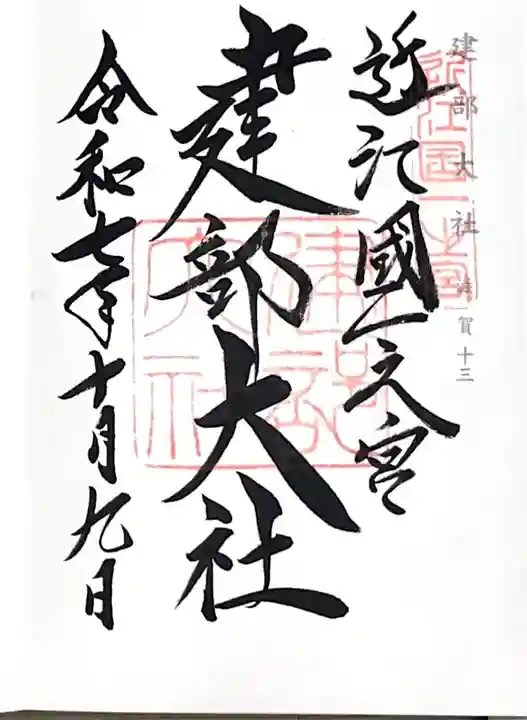 建部大社 滋賀十三
近江國一之宮
近江國一之宮
建部大社
建部大社
令和七年十月九日